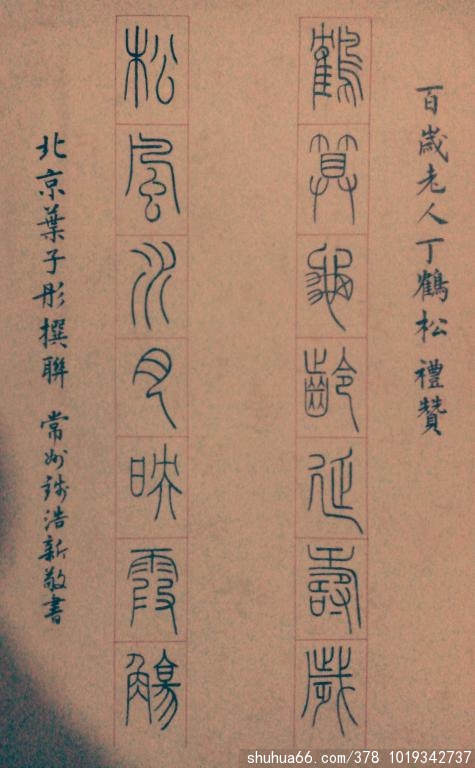 百歲老人丁鶴松禮贊
鶴算龜齡延壽歲
松風水月映霞觴
北京葉子彤撰聯 常州錢浩新敬書
shuhua66.com/378 1019342737